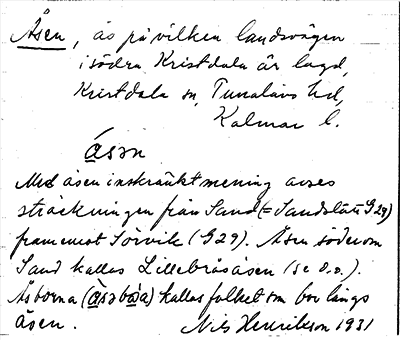 Åsen, ås på vilken landsvägen
i södra Kristdala är lagd,
Kristdala sn, Tunaläns hd,
Kalmar l.
åsən
Med åsen i inskränkt mening avses
sträckningen från Sand (= Sandslätt G29)
framemot Sörvik (G29). Åsen söderom
Sand kallas Lillebråsåsen (se d.o.).
Åsborna (åsəbòa) kallas folket som bor längs
åsen. Nils Henrikson 1931